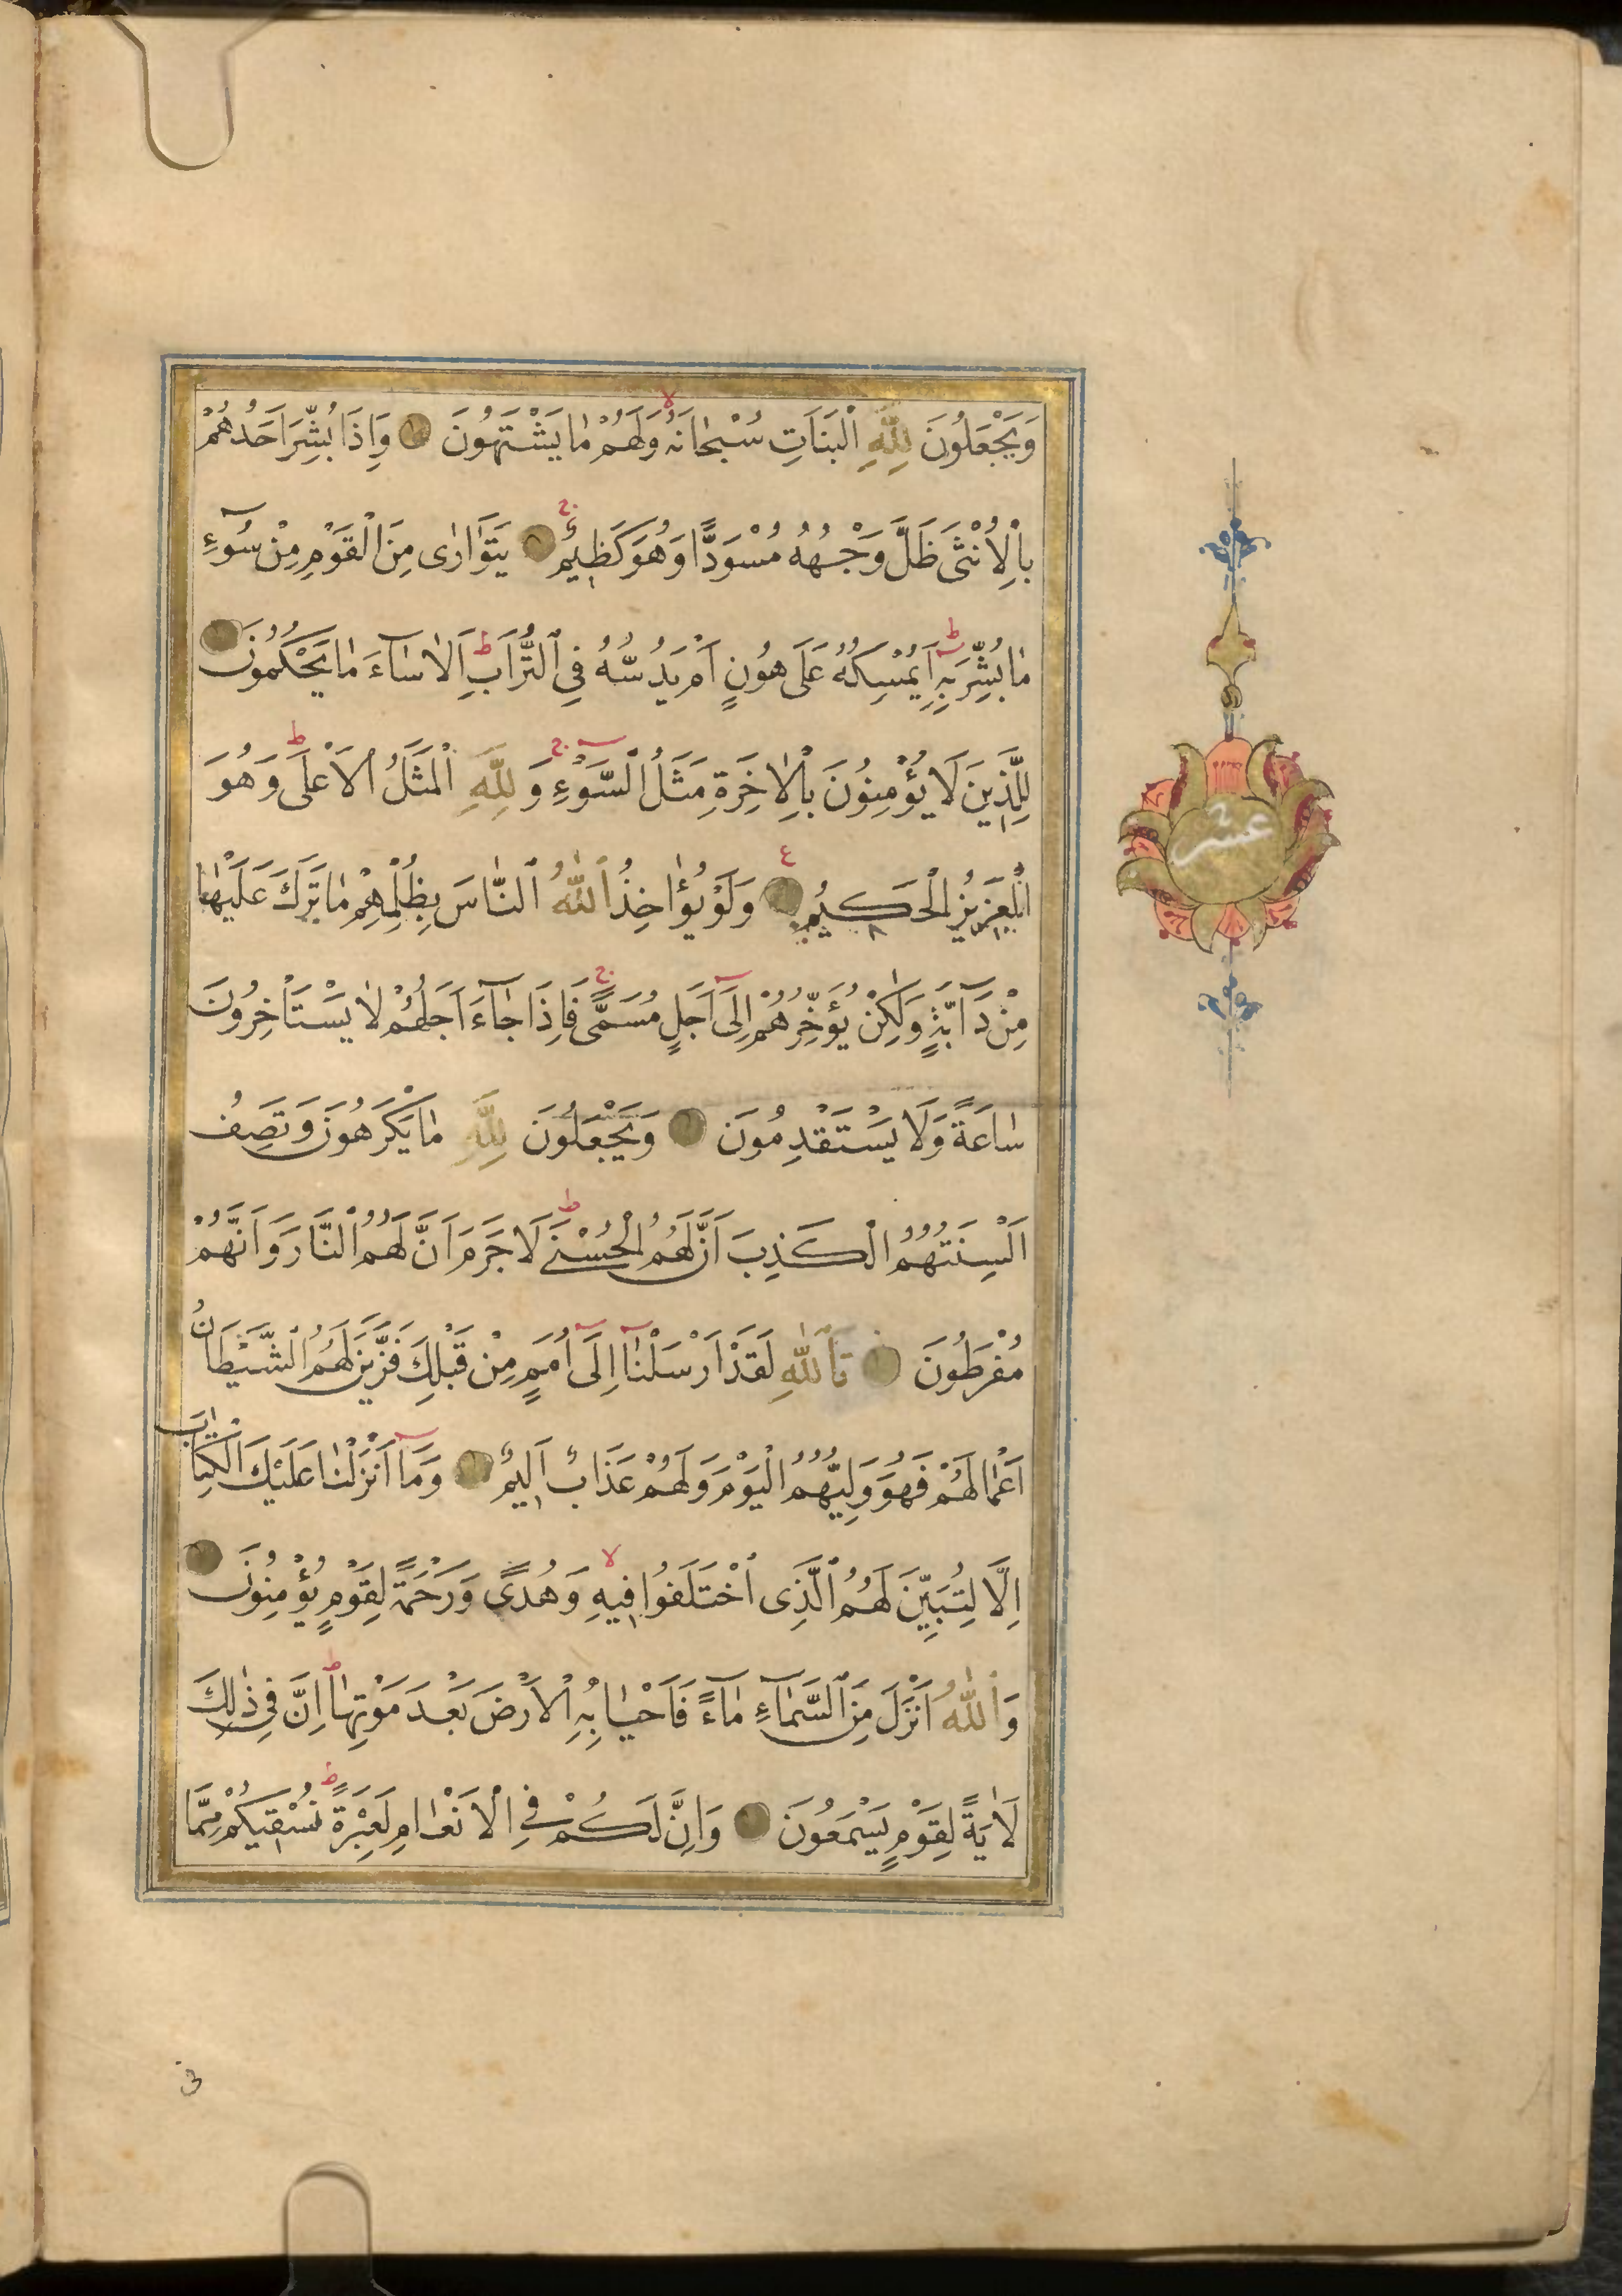 وَيَجْعَلُونَ لِلّٰهِ الْبَنَاتِ سُبْحَانَهُ وَلَهُمْ مَا يَشْتَهُونَ وَاِذَا بُشِّرَ اَحَدُهُمْ
بِالْاُنْثٰى ظَلَّ وَجْهُهُ مُسْوَدًّا وَهُوَ كَظِيمٌ يَتَوَارٰى مِنَ الْقَوْمِ مِنْ سُوٓءِ
مَا بُشِّرَ بِهِ اَيُمْسِكُهُ عَلٰى هُونٍ اَمْ يَدُسُّهُ فِي التُّرَابِ اَلَا سَاءَ مَا يَحْكُمُونَ
لِلَّذِينَ لَا يُؤْمِنُونَ بِالْاٰخِرَةِ مَثَلُ السَّوْءِ وَلِلّٰهِ الْمَثَلُ الْاَعْلٰى وَهُوَ
الْعَزِيزُ الْحَكِيمُ وَلَوْ يُؤَاخِذُ اللّٰهُ النَّاسَ بِظُلْمِهِمْ مَا تَرَكَ عَلَيْهَا
مِنْ دَآبَّةٍ وَلٰكِنْ يُؤَخِّرُهُمْ اِلٰٓى اَجَلٍ مُسَمًّى فَاِذَا جَآءَ اَجَلُهُمْ لَا يَسْتَاْخِرُونَ
سَاعَةً وَلَا يَسْتَقْدِمُونَ وَيَجْعَلُونَ لِلّٰهِ مَا يَكْرَهُونَ وَتَصِفُ
اَلْسِنَتُهُمُ الْكَذِبَ اَنَّ لَهُمُ الْحُسْنٰى لَا جَرَمَ اَنَّ لَهُمُ النَّارَ وَاَنَّهُمْ
مُفْرَطُونَ تَاللّٰهِ لَقَدْ اَرْسَلْنَآ اِلٰٓى اُمَمٍ مِنْ قَبْلِكَ فَزَيَّنَ لَهُمُ الشَّيْطَانُ
اَعْمَالَهُمْ فَهُوَ وَلِيُّهُمُ الْيَوْمَ وَلَهُمْ عَذَابٌ اَلِيمٌ وَمَآ اَنْزَلْنَا عَلَيْكَ الْكِتَابَ
اِلَّا لِتُبَيِّنَ لَهُمُ الَّذِى اخْتَلَفُوا فِيهِ وَهُدًى وَرَحْمَةً لِقَوْمٍ يُؤْمِنُونَ
وَاللّٰهُ اَنْزَلَ مِنَ السَّمَآءِ مَآءً فَاَحْيَا بِهِ الْاَرْضَ بَعْدَ مَوْتِهَا اِنَّ فِى ذٰلِكَ
لَاٰيَةً لِقَوْمٍ يَسْمَعُونَ وَاِنَّ لَكُمْ فِى الْاَنْعَامِ لَعِبْرَةً نُسْقِيكُمْ مِمَّا
عشر